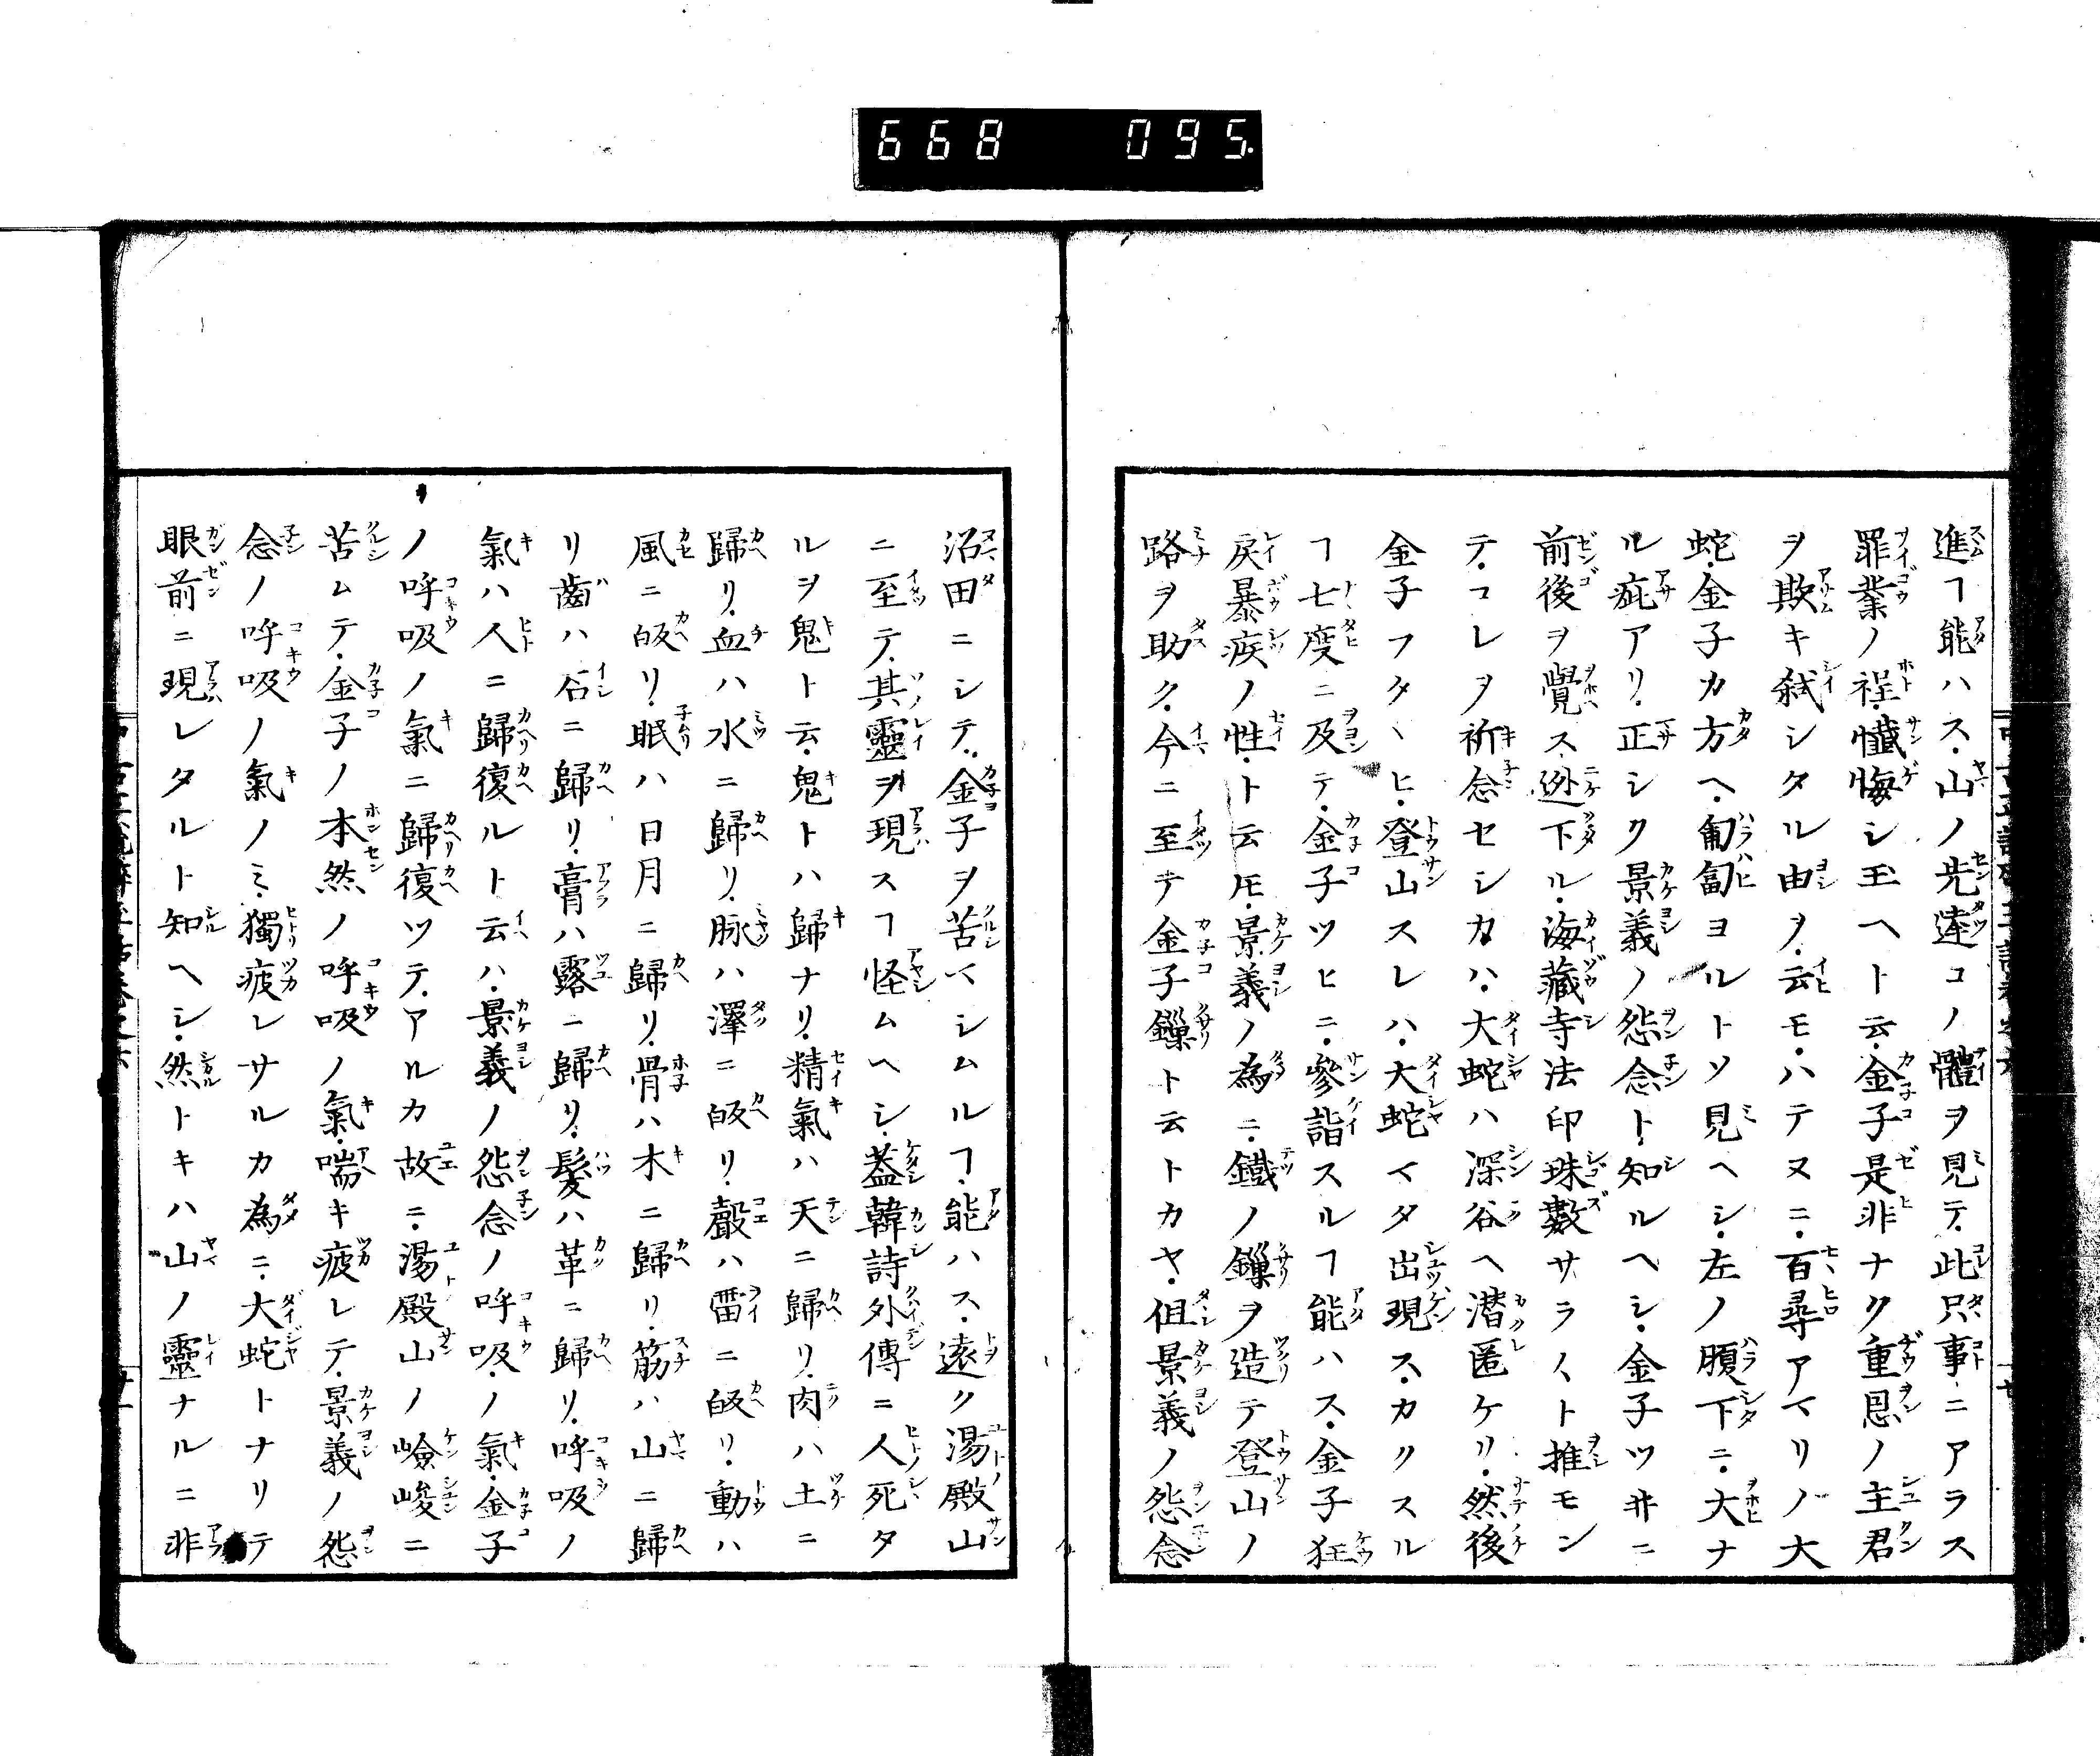 668 095.
進ヿ能ハス山ノ先達コノ體ヲ見テ此只事ニアラス
罪業ノ程懺悔シ玉ヘト云金子是非ナク重恩ノ主君
ヲ欺キ弑シタル由ヲ云モハテヌニ百尋アマリノ大
蛇金子カ方ヘ匍匐ヨルトソ見ヘシ左ノ腰下ニ大ナ
ル疵アリ正シク景義ノ怨念ト知ルヘシ金子ツ井ニ
前後ヲ覺ス迯下ル海藏寺法印珠數サラ〱ト推モン
テコレヲ祈念セシカハ大蛇ハ深谷ヘ潜匿ケリ然後
金子フタヽヒ登山スレハ大蛇マタ出現スカクスル
ヿ七度ニ及テ金子ツヒニ參詣スルヿ能ハス金子狂
戻暴疾ノ性ト云𪜈景義ノ為ニ鐵ノ鏁ヲ造テ登山ノ
路ヲ助ク今ニ至テ金子鏁ト云トカヤ但景義ノ怨念
沼田ニシテ金子ヲ苦マシムルヿ能ハス遠ク湯殿山
ニ至テ其靈ヲ現スヿ怪ムヘシ蓋韓詩外傳ニ人死タ
ルヲ鬼ト云鬼トハ歸ナリ精氣ハ天ニ歸リ肉ハ土ニ
歸リ血ハ水ニ歸リ脉ハ澤ニ皈リ聲ハ雷ニ皈リ動ハ
風ニ皈リ眠ハ日月ニ歸リ骨ハ木ニ歸リ筋ハ山ニ歸
リ齒ハ石ニ歸リ膏ハ露ニ歸リ髮ハ革ニ歸リ呼吸ノ
氣ハ人ニ歸復ルト云ハ景義ノ怨念ノ呼吸ノ氣金子
ノ呼吸ノ氣ニ歸復ツテアルカ故ニ湯殿山ノ嶮峻ニ
苦ムテ金子ノ本然ノ呼吸ノ氣喘キ疲レテ景義ノ怨
念ノ呼吸ノ氣ノミ獨疲レサルカ為ニ大蛇トナリテ
眼前ニ現レタルト知ヘシ然トキハ山ノ靈ナルニ非